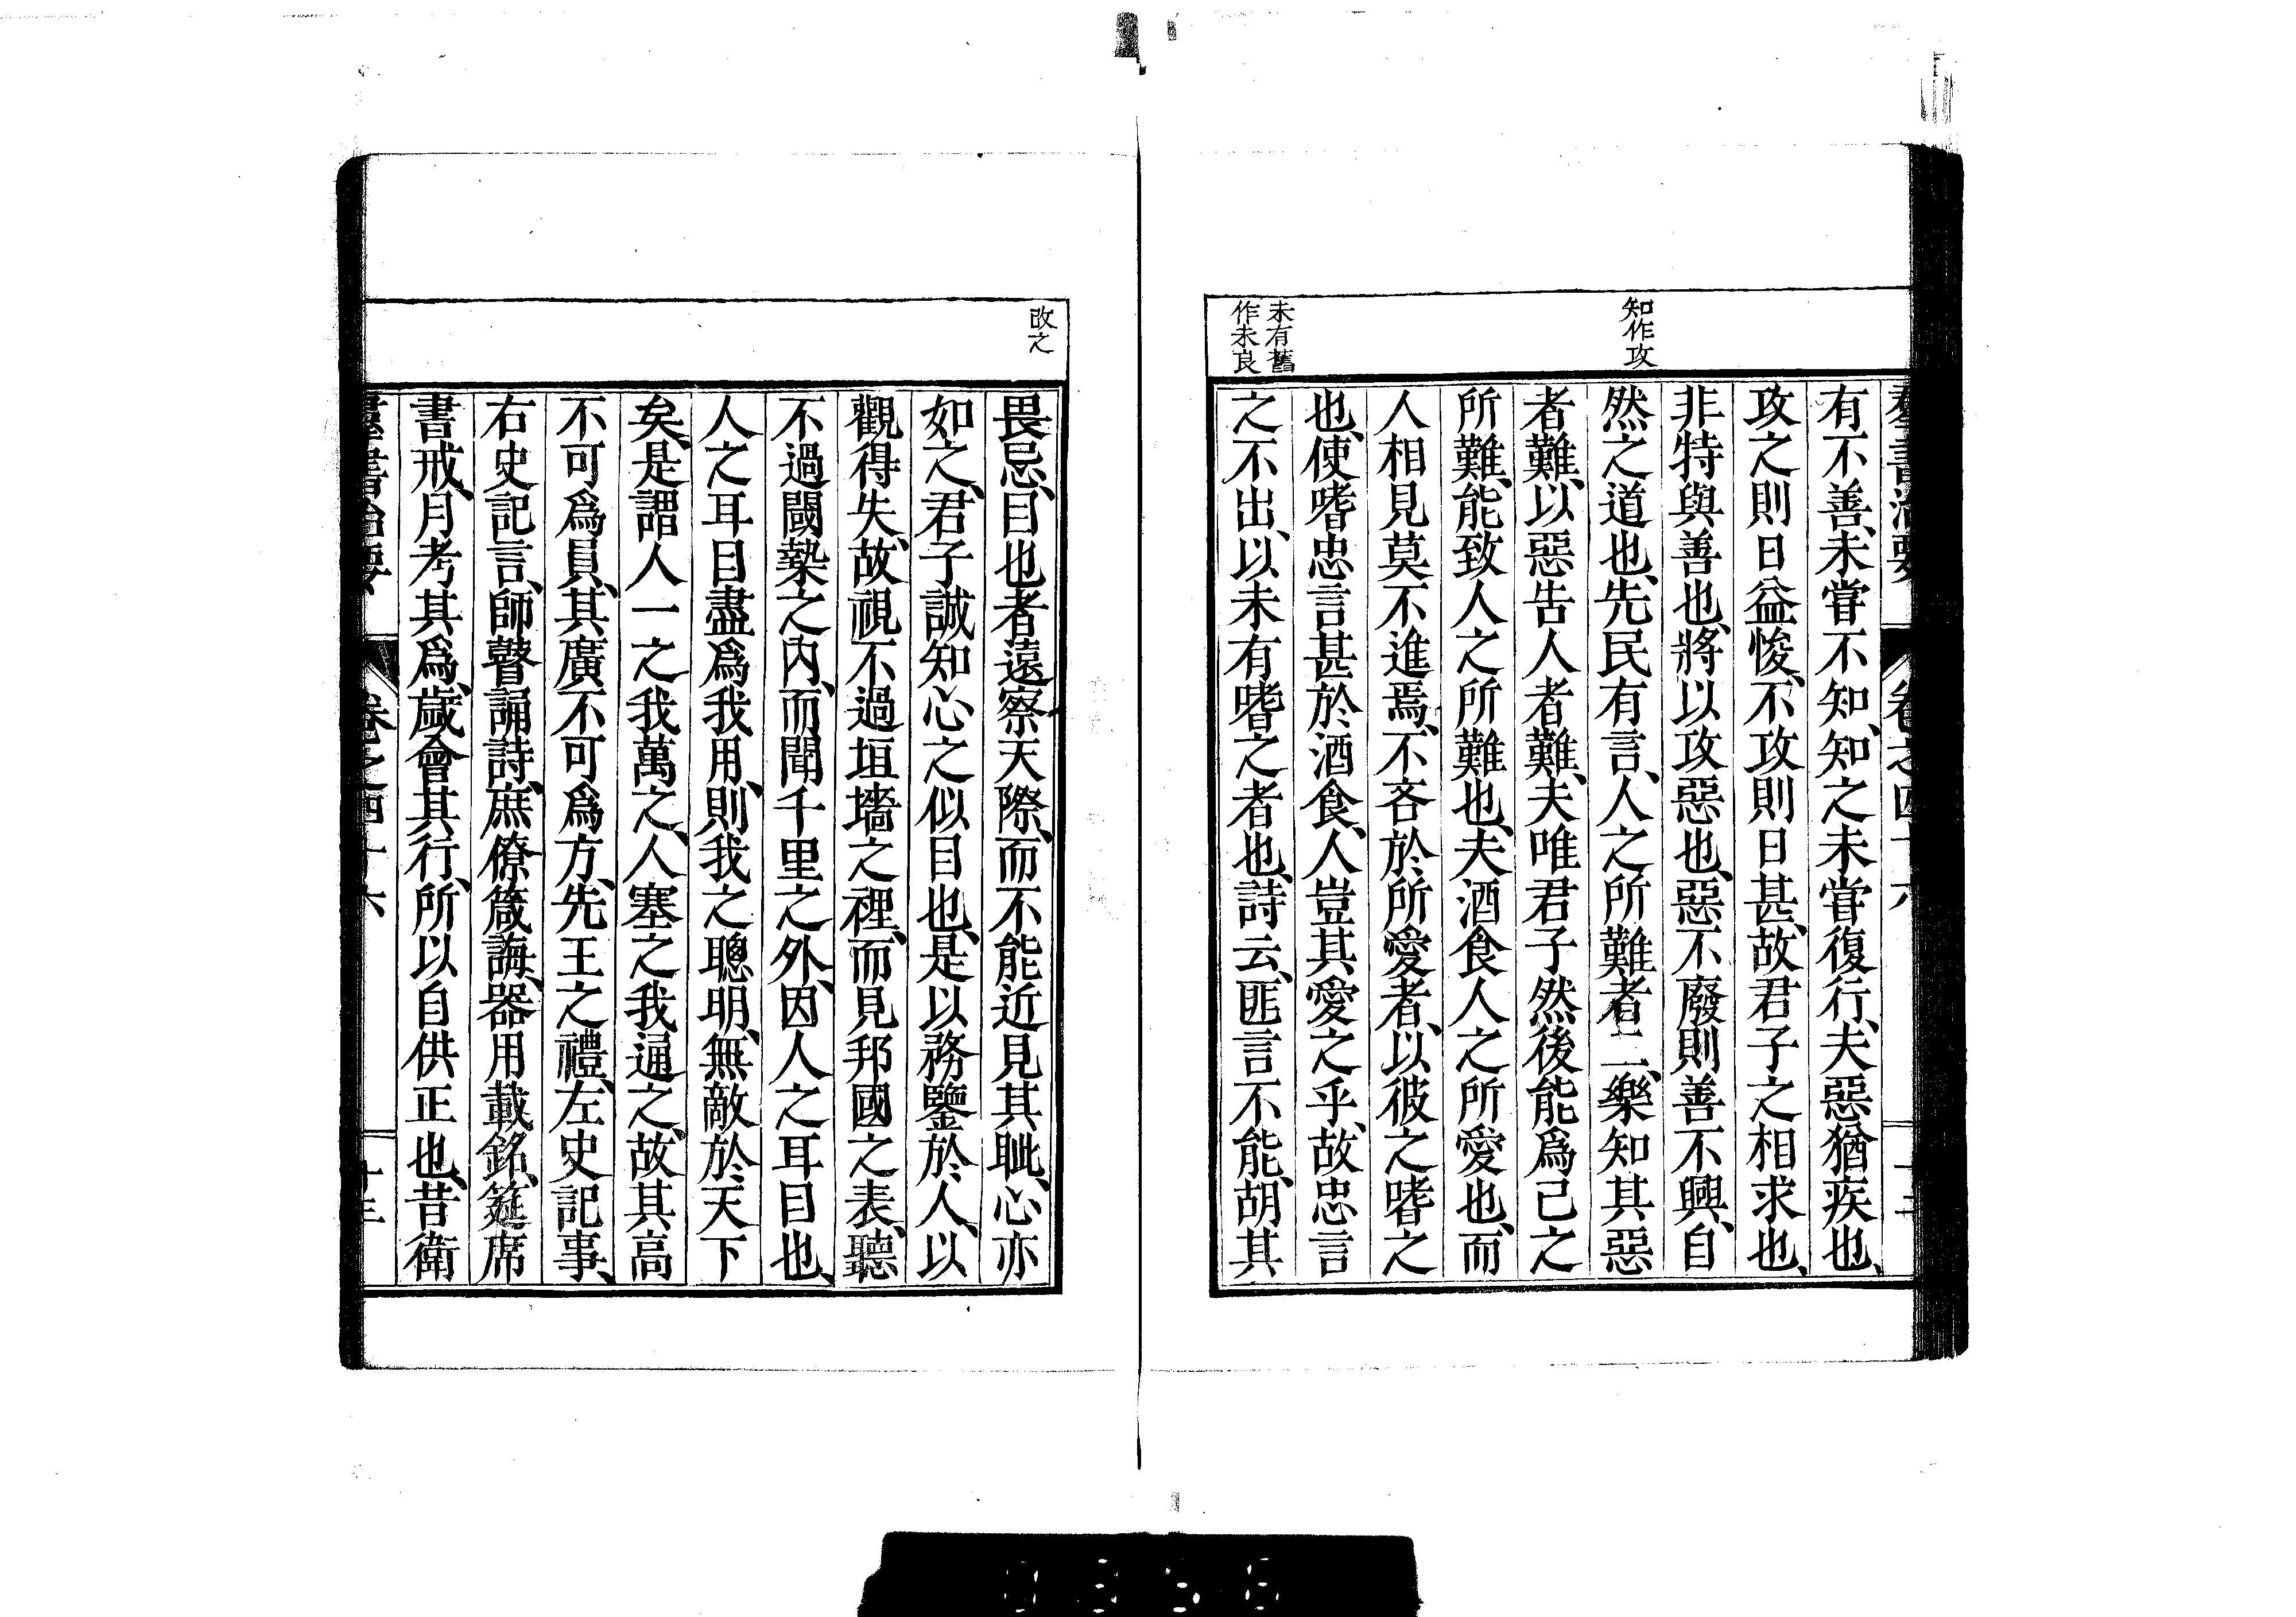 羣書治要 卷之四十六 十三
知作攻
未有舊
作未良
有不善、未甞不知、知之未甞復行、夫惡猶疾也、
攻之則日益悛、不攻則日甚、故君子之相求也、
非特與善也、將以攻惡也、惡不廢則善不興、自
然之道也、先民有言、人之所難者二、樂知其惡
者難、以惡告人者難、夫唯君子然後能爲己之
所難、能致人之所難也、夫酒食人之所愛也、而
人相見莫不進焉、不吝於所愛者、以彼之嗜之
也、使嗜忠言甚於酒食、人豈其愛之乎、故忠言
之不出、以未有嗜之者也、詩云、匪言不能、胡其
改之
畏忌、目也者遠察天際、而不能近見其眦、心亦
如之、君子誠知心之似目也、是以務鑒於人、以
觀得失、故視不過垣墻之裡、而見邦國之表、聽
不過閾槷之內、而聞千里之外、因人之耳目也、
人之耳目盡爲我用、則我之聰明、無敵於天下
矣、是謂人一之我萬之、人塞之我通之、故其高
不可爲員、其廣不可爲方、先王之禮、左史記事、
右史記言、師瞽誦詩、庶僚箴誨、器用載銘、筵席
書戒、月考其爲、歲會其行、所以自供正也、昔衛
羣書治要 卷之四十六